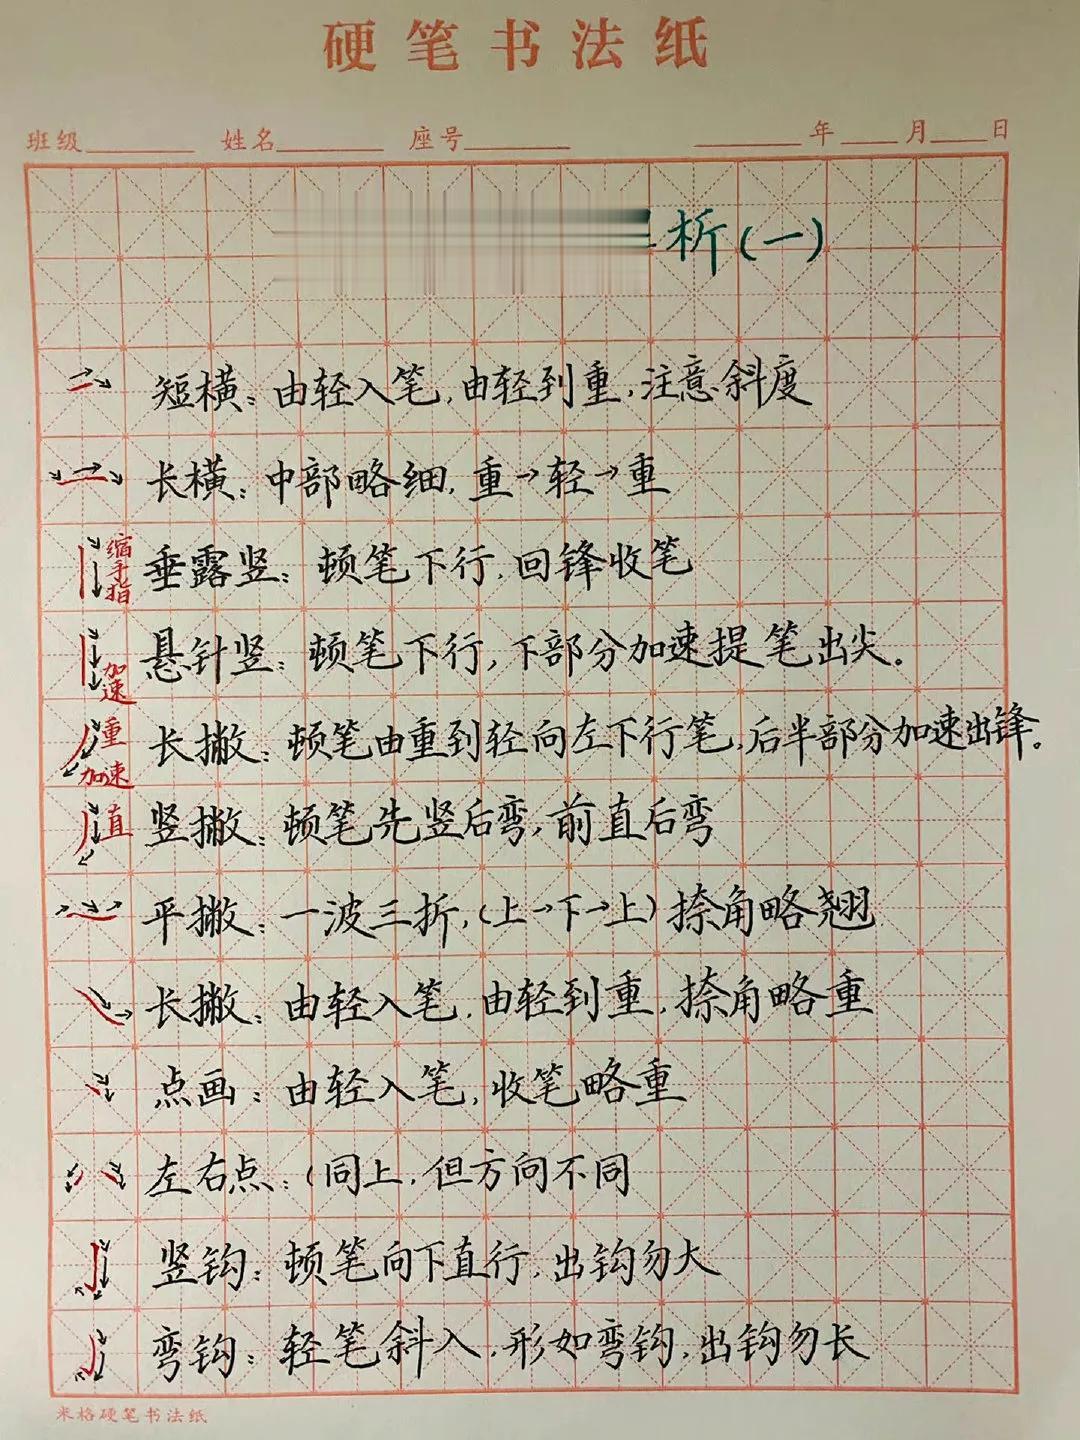 硬笔书法纸
班级 姓名 座号 年 月 日
析(一)
短横：由轻入笔，由轻到重，注意斜度
长横：中部略细，重→轻→重
缩手指 垂露竖：顿笔下行，回锋收笔
加速 悬针竖：顿笔下行，下部分加速提笔出尖。
重 加速 长撇：顿笔由重到轻向左下行笔，后半部分加速出锋。
直 竖撇：顿笔先竖后弯，前直后弯
平撇：一波三折，(上→下→上)捺角略翘
长撇：由轻入笔，由轻到重，捺角略重
点画：由轻入笔，收笔略重
左右点：(同上，但方向不同
竖钩：顿笔向下直行，出钩勿大
弯钩：轻笔斜入，形如弯钩，出钩勿长
米格硬笔书法纸